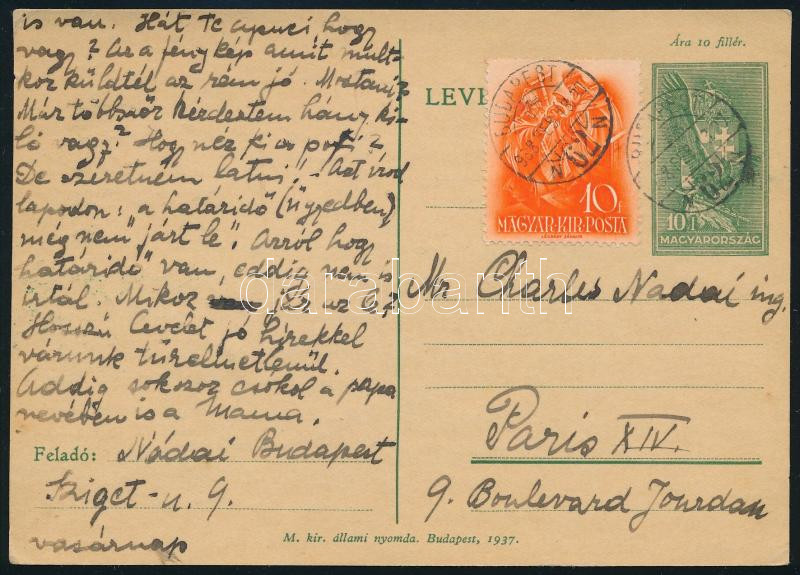 is van. Hát Te apuci hogy
vagy? Az a fénykép amit mult-
kor küldtél az rém jó. Mostani?
Már többször kérdeztem hány ki-
ló vagy? Hogy néz ki a
De szeretném látni! Azt írod
lapodon: a határidő (ügyedben)
még nem "járt le". Arról hogy
határidő van, eddig nem is
írtál. Mikor jár ez le?
Hosszú levelet jó hírekkel
várunk türelmetlenül.
Addig sokszor csókol a papa
nevében is a Mama.
Feladó: Nádai Budapest
Sziget-u. 9.
vasárnap
Ára 10 fillér.
LEVE
BUDAPEST
10 f
MAGYAR·KIR·POSTA
10 f
MAGYARORSZÁG
Mr. Charles Nadai ing.
Paris XIV.
9. Boulevard Jourdan
M. kir. állami nyomda. Budapest, 1937.
darabanth